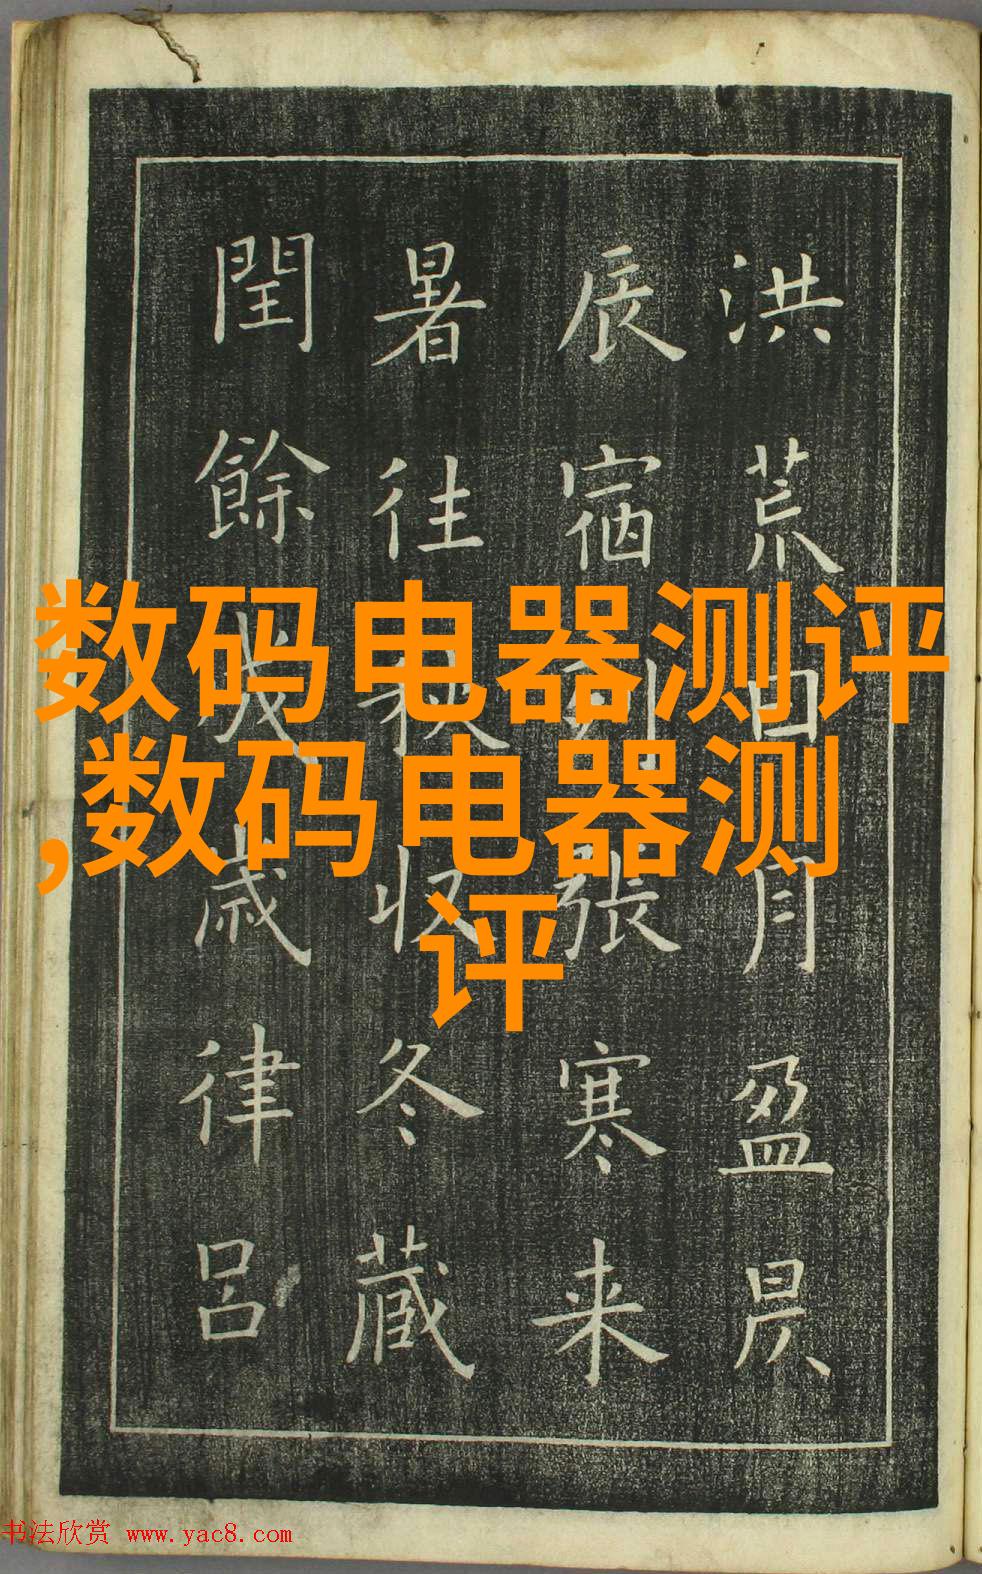 洪荒日月盈昃
辰宿列張寒来
暑往秋收冬藏
閏餘成歳律吕
数码电器测评
,数码电器测
评
书法欣赏 www.yac8.com